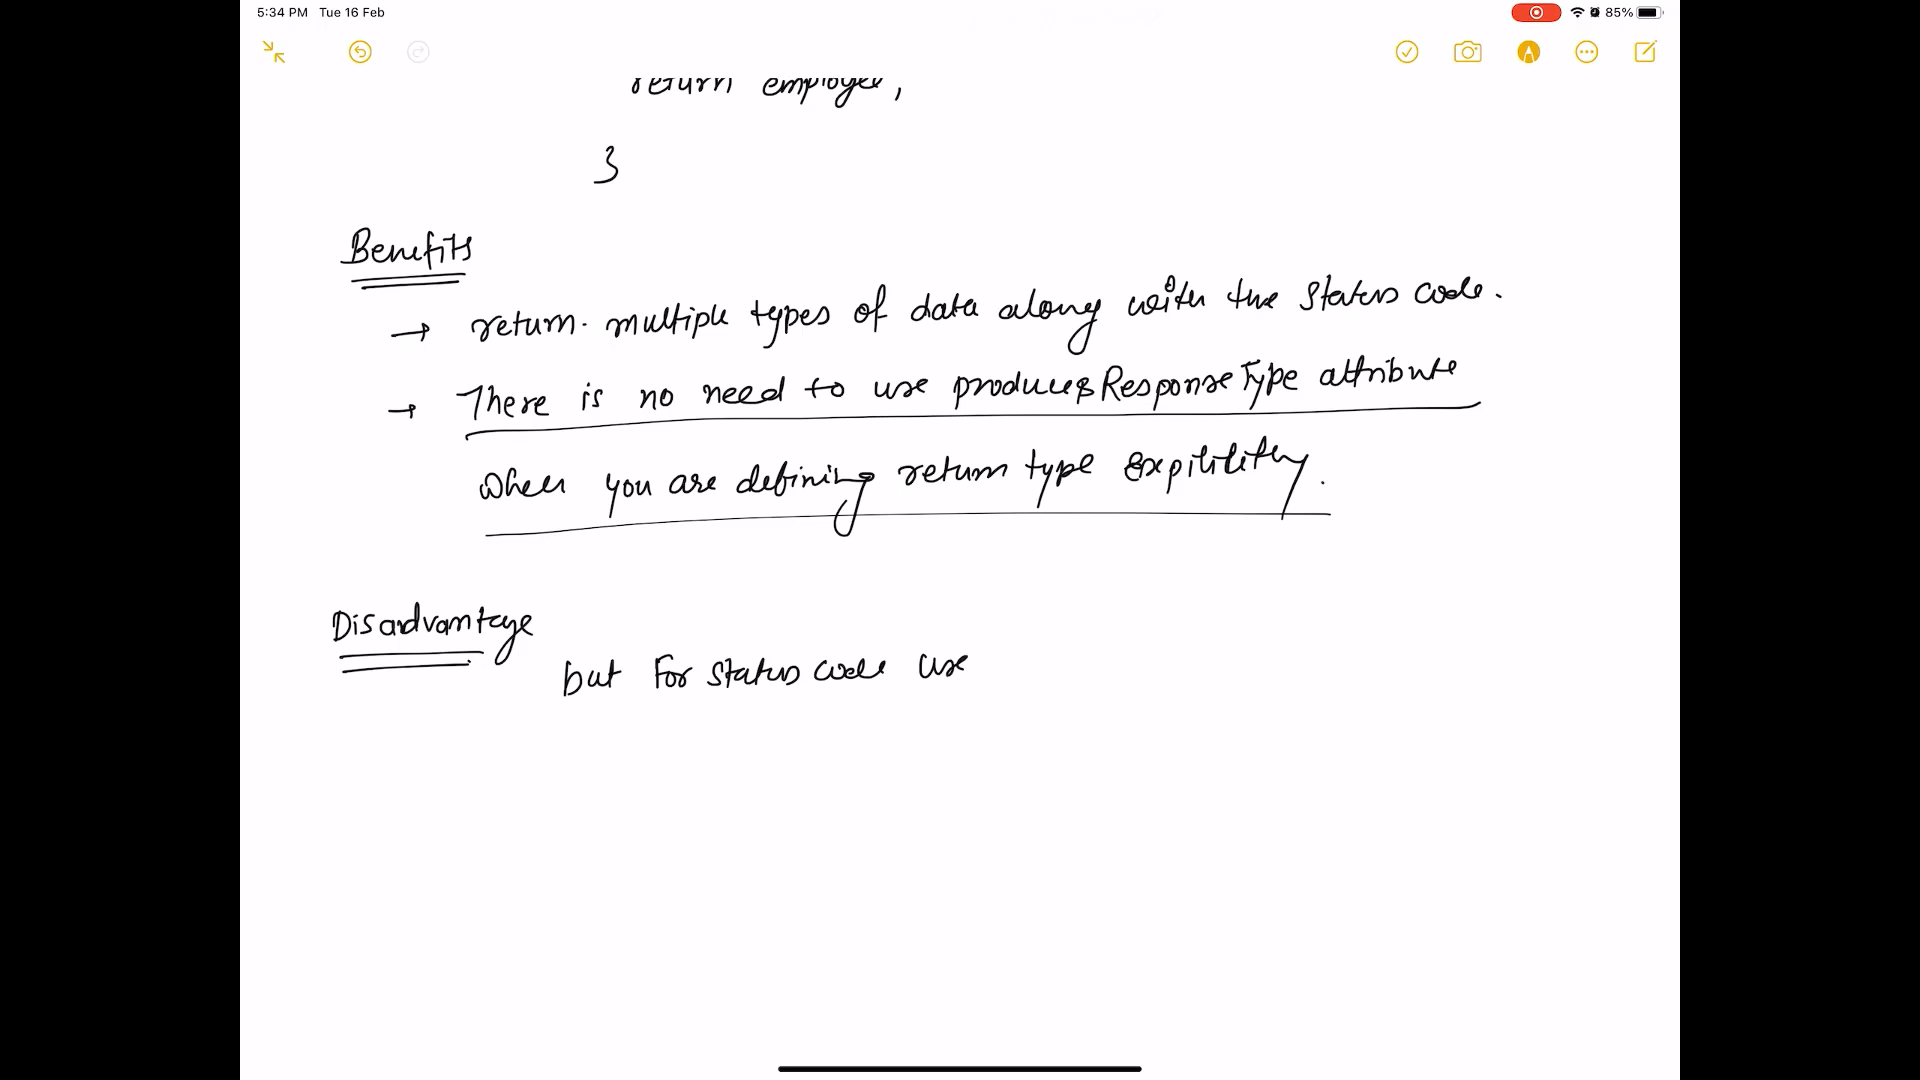 5:34 PM Tue 16 Feb 85%
return employee;
}
Benefits
→ return multiple types of data along with the status code.
→ There is no need to use producesResponseType attribute
when you are defining return type expilitity.
Disadvantage
but For status code use